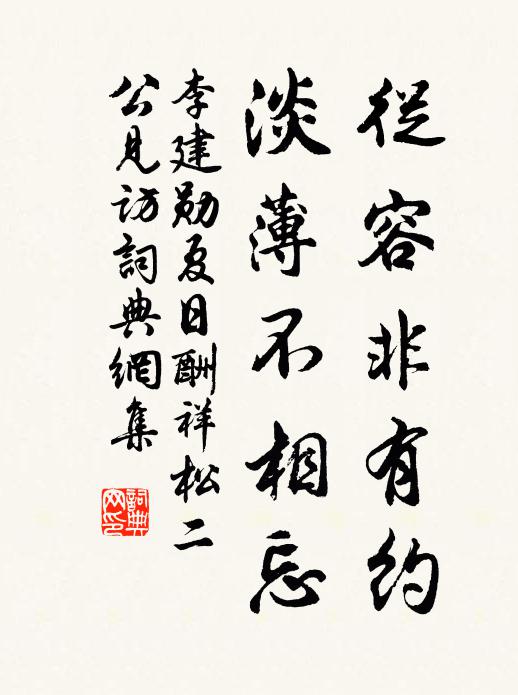 從容非有約
淡薄不相忘
李建勛夏日酬祥松二
公見訪詞典網集
詞典
网印